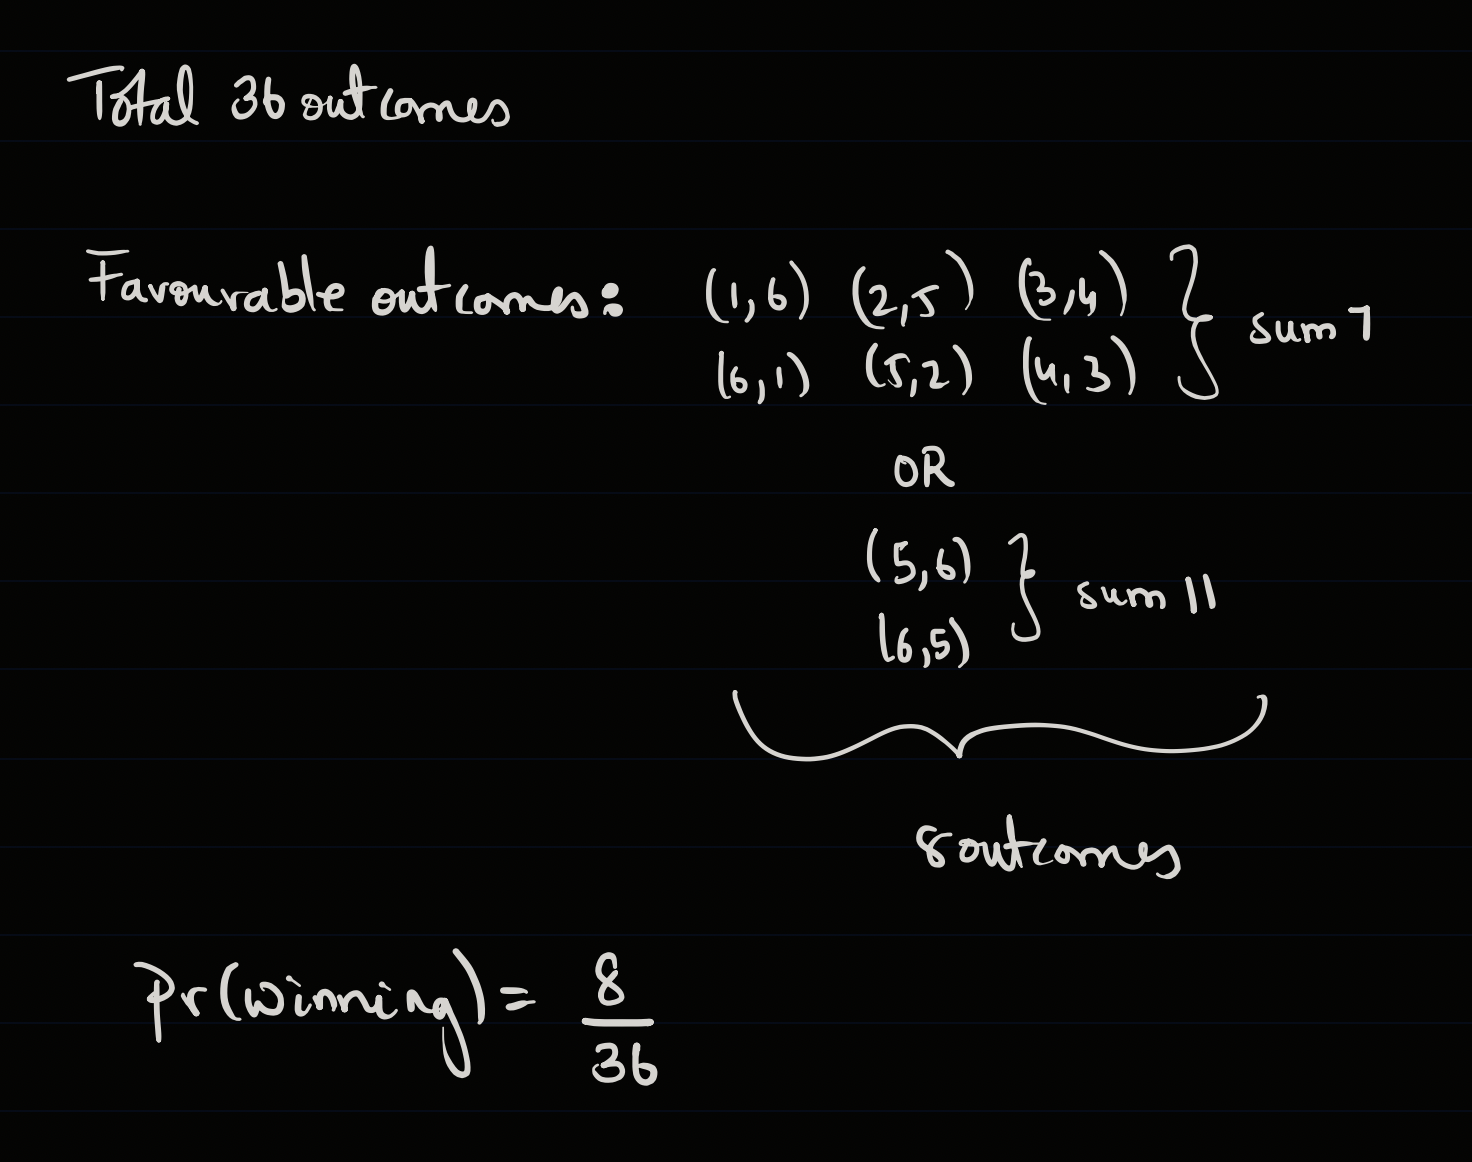 Total 36 outcomes
Favourable outcomes: (1,6) (2,5) (3,4)
(6,1) (5,2) (4,3) } sum 7
OR
(5,6)
(6,5) } sum 11
8 outcomes
Pr(winning) = 8/36